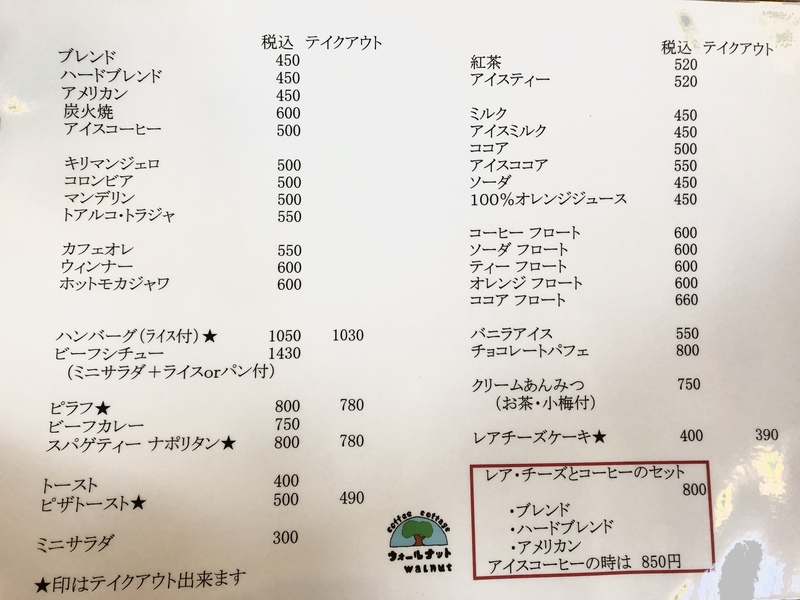 税込 テイクアウト
ブレンド 450
ハードブレンド 450
アメリカン 450
炭火焼 600
アイスコーヒー 500
キリマンジェロ 500
コロンビア 500
マンデリン 500
トアルコ・トラジャ 550
カフェオレ 550
ウィンナー 600
ホットモカジャワ 600
ハンバーグ(ライス付)★ 1050 1030
ビーフシチュー 1430
(ミニサラダ＋ライスorパン付)
ピラフ★ 800 780
ビーフカレー 750
スパゲティー ナポリタン★ 800 780
トースト 400
ピザトースト★ 500 490
ミニサラダ 300
★印はテイクアウト出来ます
税込 テイクアウト
紅茶 520
アイスティー 520
ミルク 450
アイスミルク 450
ココア 500
アイスココア 550
ソーダ 450
100%オレンジジュース 450
コーヒー フロート 600
ソーダ フロート 600
ティー フロート 600
オレンジ フロート 600
ココア フロート 660
バニラアイス 550
チョコレートパフェ 800
クリームあんみつ 750
(お茶・小梅付)
レアチーズケーキ★ 400 390
レア・チーズとコーヒーのセット
800
・ブレンド
・ハードブレンド
・アメリカン
アイスコーヒーの時は 850円
coffee cottage
ウォールナット
walnut